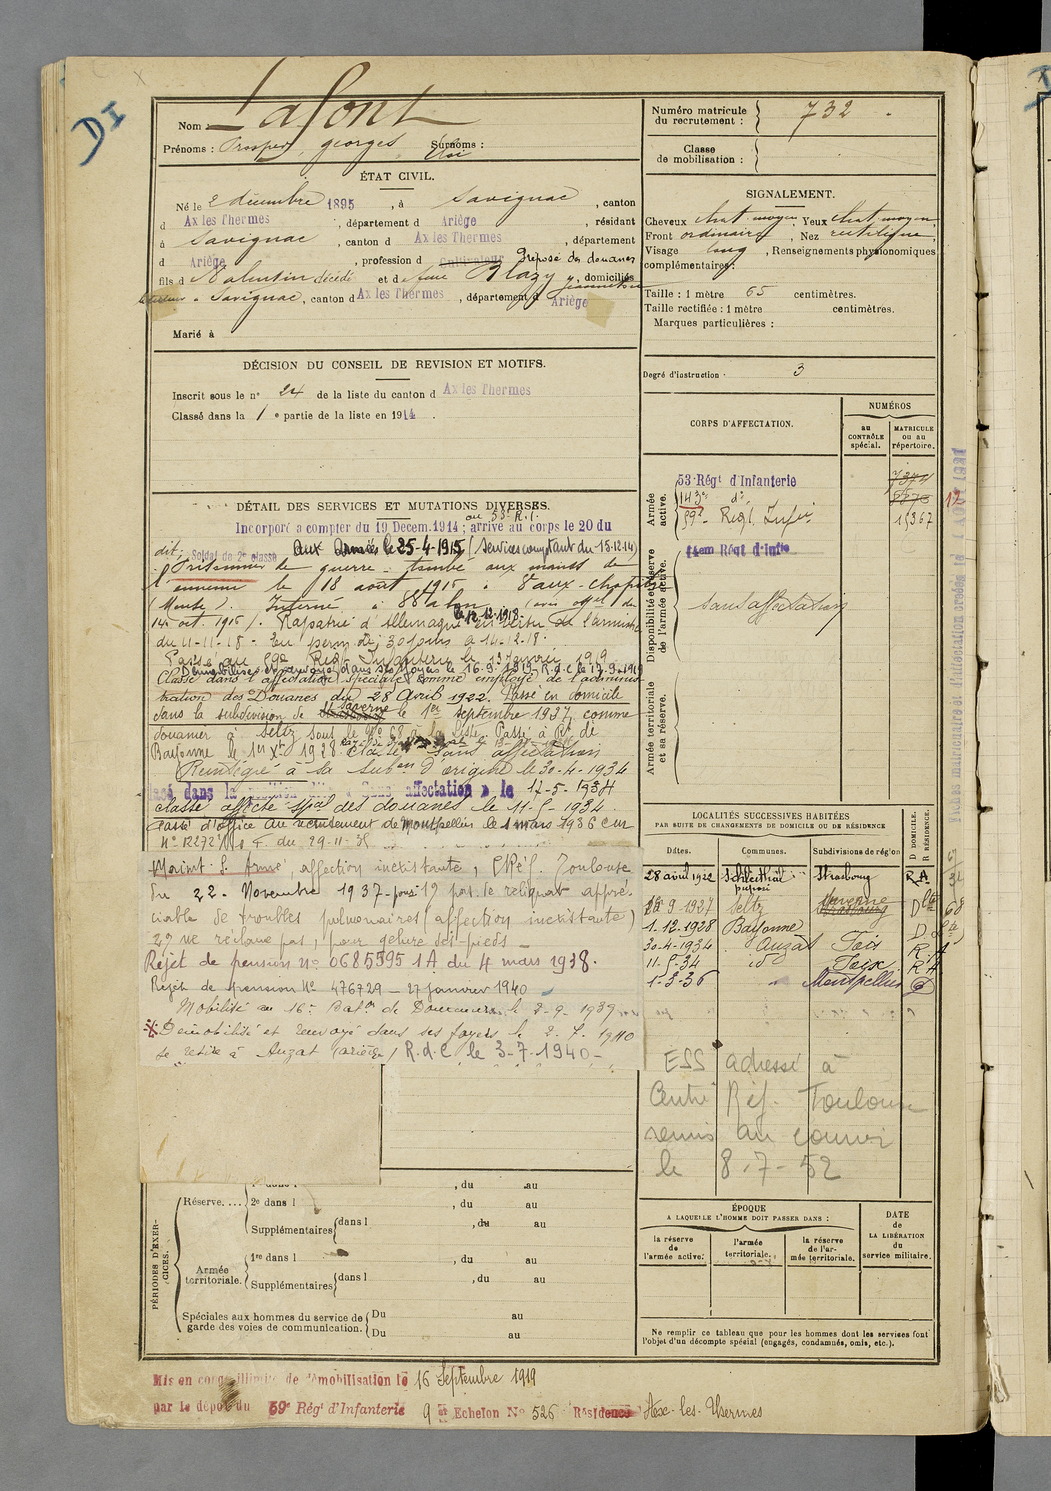 D I
Nom : Lafont
Prénoms : Prosper, georges Surnoms :
Eloi
ÉTAT CIVIL.
Né le 2 décembre 1895, à Savignac, canton
d Ax les Thermes, département d Ariège, résidant
à Savignac, canton d Ax les Thermes, département
d Ariège, profession d Cultivateur Préposé des douanes
fils d Valentin décédé et d feue Blazy Jeannette, domiciliés
à Savignac, canton d Ax les Thermes, département d Ariège
Marié à
DÉCISION DU CONSEIL DE REVISION ET MOTIFS.
Inscrit sous le n° 24 de la liste du canton d Ax les Thermes
Classé dans la 1e partie de la liste en 1914.
DÉTAIL DES SERVICES ET MUTATIONS DIVERSES.
au 53e R.I.
Incorporé a compter du 19 Decem. 1914 ; arrivé au corps le 20 du
dit; Soldat de 2e classe Aux Armées le 25-4-1915 (services comptant du 15-12-14)
Prisonnier de guerre. tombé aux mains de
l'ennemi le 18 août 1915 à Vaux-Chapelle
(Meuse). Interné à (avis offel du
14 oct. 1915). Rapatrié d'Allemagne le 12.12.1918. en vertu de l'armistice
du 11-11-18 - En perm de 30 jours le 14-12-18.
Passé au 59e Regt Infanterie le 13 Janvier 1919
Démobilisé et renvoyé dans ses foyers le 16-9-1919 R.d.C le 17-9-1919
Classé dans l'affectation spéciale comme employé de l'adminis-
tration des Douanes du 28 Avril 1922. Passé en domicile
dans la subdivision de Strasbourg Saverne le 1er septembre 1927, comme
douanier à Seltz sous le N° 68 de la liste. Passé à Rt de
Bayonne le 1er Xe 1928 Classé sans affectation
Réintégré à sa Subon d'origine le 30-4-1934
Classé dans la position dite « Sans affectation » le 17-5-1934
classé affecté spal des douanes le 11-5-1934.
Passé d'office au recrutement de Montpellier le 1 mars 1936 Cir
N° 12272 1/1 E du 29-11-35
Maint. S. Armé, affection inexistante, CRéf. Toulouse
du 22 - Novembre 1937 - pour 1° pas de reliquat appré-
ciable de troubles pulmonaires (affection inexistante)
2° ne réclame pas, pour gelure des pieds -
Rejet de pension N° 0685595 1A du 4 mars 1938.
Rejet de pension N° 476729 - 27 janvier 1940
Mobilisé au 16e Baton de Douaniers le 2-9-1939
Démobilisé et renvoyé dans ses foyers le 2.7.1940
se retire à Auzat (ariège) R.d.C le 3-7-1940 -
PÉRIODES D'EXERCICES.
, du au
Réserve.... 2e dans l , du au
Supplémentaires dans l , du au
Armée territoriale. 1re dans l , du au
Supplémentaires dans l , du au
Spéciales aux hommes du service de garde des voies de communication. Du au
Du au
Numéro matricule du recrutement : 732
Classe de mobilisation :
SIGNALEMENT.
Cheveux chat. moyen Yeux chat. moyen
Front ordinaire, Nez rectiligne
Visage long, Renseignements physionomiques
complémentaires :
Taille : 1 mètre 65 centimètres.
Taille rectifiée : 1 mètre centimètres.
Marques particulières :
Degré d'instruction : 3
CORPS D'AFFECTATION.
NUMÉROS
au CONTRÔLE spécial.
MATRICULE ou au répertoire.
Armée active.
53 Régt d'Infanterie 7374
143e do 5576 12
59e Regt Infie 15367
Disponibilité et réserve de l'armée active.
14em Régt d'Infie
sans affectation
Armée territoriale et sa réserve.
LOCALITÉS SUCCESSIVES HABITÉES
PAR SUITE DE CHANGEMENTS DE DOMICILE OU DE RÉSIDENCE
Dates. Communes. Subdivisions de région D DOMICILE. R RÉSIDENCE.
28 avril 1922 Strasbourg R.A
préposé
1er 9-1927 Seltz Saverne Strasbourg D 68
1.12.1928 Bayonne D
30-4-1934 Auzat Foix R.A
11-5-34 id Foix R A
1-3-36 " Montpellier
ESS adressé à
Centre Réf. Toulouse
remis au courrier
le 8-7-52
ÉPOQUE
A LAQUELLE L'HOMME DOIT PASSER DANS :
la réserve de l'armée active.
l'armée territoriale.
la réserve de l'armée territoriale.
DATE de LA LIBÉRATION du service militaire.
Ne remplir ce tableau que pour les hommes dont les services font
l'objet d'un décompte spécial (engagés, condamnés, omis, etc.).
Mis en congé illimité de démobilisation le 16 Septembre 1919
par le dépôt du 59e Régt d'Infanterie 9e Echelon N° 526 Résidence Ax-les-Thermes